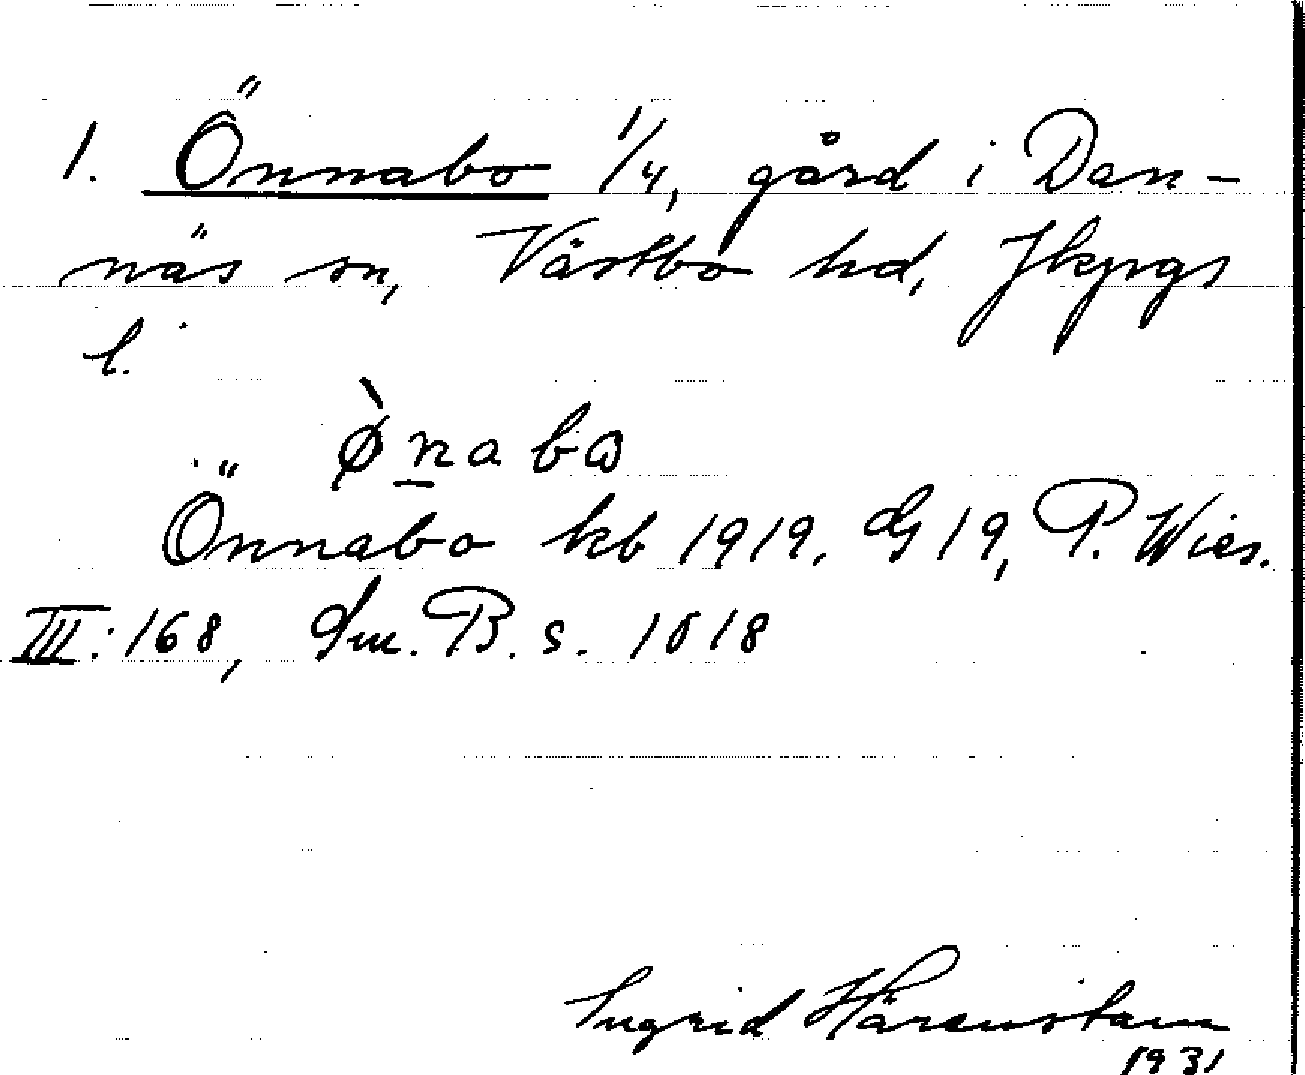 1. Önnabo 1/4, gård i Dan-
näs sn, Västbo hd, Jkpgs
l.
ø̀naba
Önnabo kb 1919. G 19, P. Wies.
III: 168, Sm. B. s. 1018
Ingrid Härenstam
1931